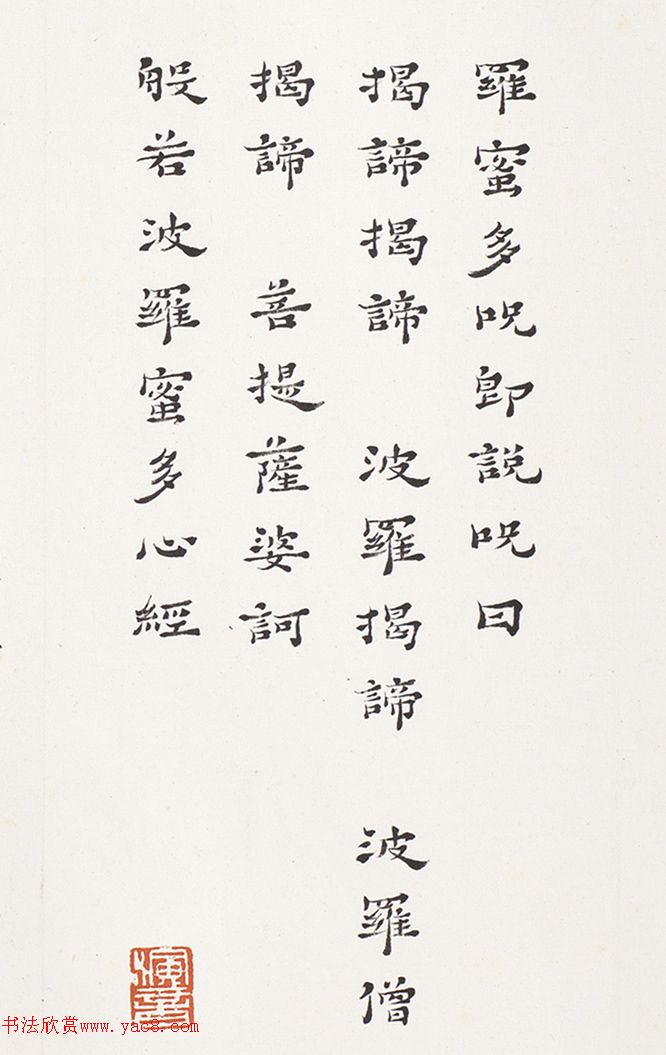 羅蜜多呪即説呪曰
揭諦揭諦 波羅揭諦 波羅僧
揭諦 菩提薩婆訶
般若波羅蜜多心經
书法欣赏www.yac8.com